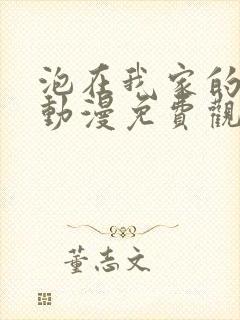 泡在我家的
動漫免費觀
董志文